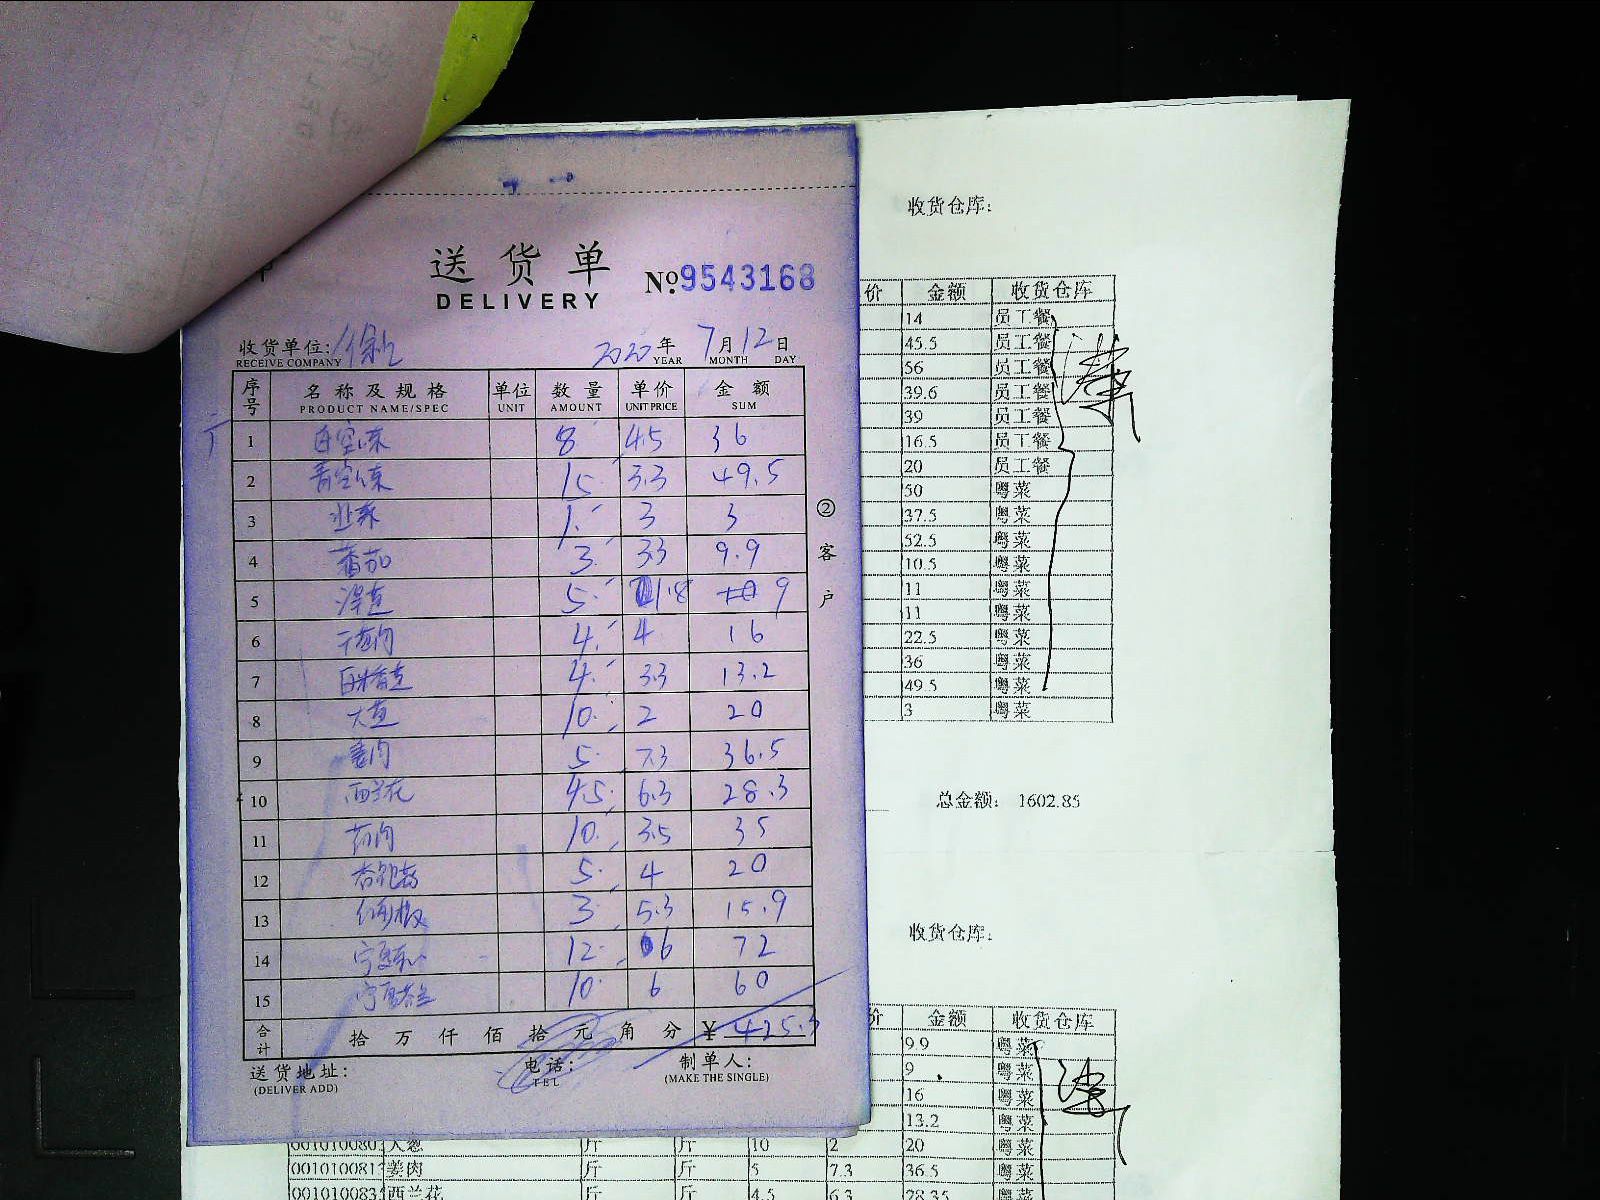 送货单
DELIVERY
No.9543168
收货单位:
RECEIVE COMPANY
2020年 7月12日
YEAR MONTH DAY
序号 名称及规格 单位 数量 单价 金额
PRODUCT NAME/SPEC UNIT AMOUNT UNIT PRICE SUM
1 白空心菜 8 4.5 36
2 青空心菜 15 3.3 49.5
3 1 3 3
4 蕃茄 3 3.3 9.9
5 5 1.8 9
6 4 4 16
7 4 3.3 13.2
8 大葱 10 2 20
9 姜肉 5 7.3 36.5
10 西兰花 4.5 6.3 28.3
11 10 3.5 35
12 杏鲍菇 5 4 20
13 3 5.3 15.9
14 12 6 72
15 10 6 60
合计 拾万仟佰拾元角分 ¥ 425.3
送货地址:
(DELIVER ADD)
电话:
TEL
制单人:
(MAKE THE SINGLE)
②客户
收货仓库:
价 金额 收货仓库
14 员工餐
45.5 员工餐
56 员工餐
39.6 员工餐
39 员工餐
16.5 员工餐
20 员工餐
50 粤菜
37.5 粤菜
52.5 粤菜
10.5 粤菜
11 粤菜
11 粤菜
22.5 粤菜
36 粤菜
49.5 粤菜
3 粤菜
总金额: 1602.85
收货仓库:
价 金额 收货仓库
9.9 粤菜
9 粤菜
16 粤菜
13.2 粤菜
大葱 斤 斤 10 2 20 粤菜
姜肉 斤 斤 5 7.3 36.5 粤菜
西兰花 斤 斤 4.5 6.3 28.35 粤菜